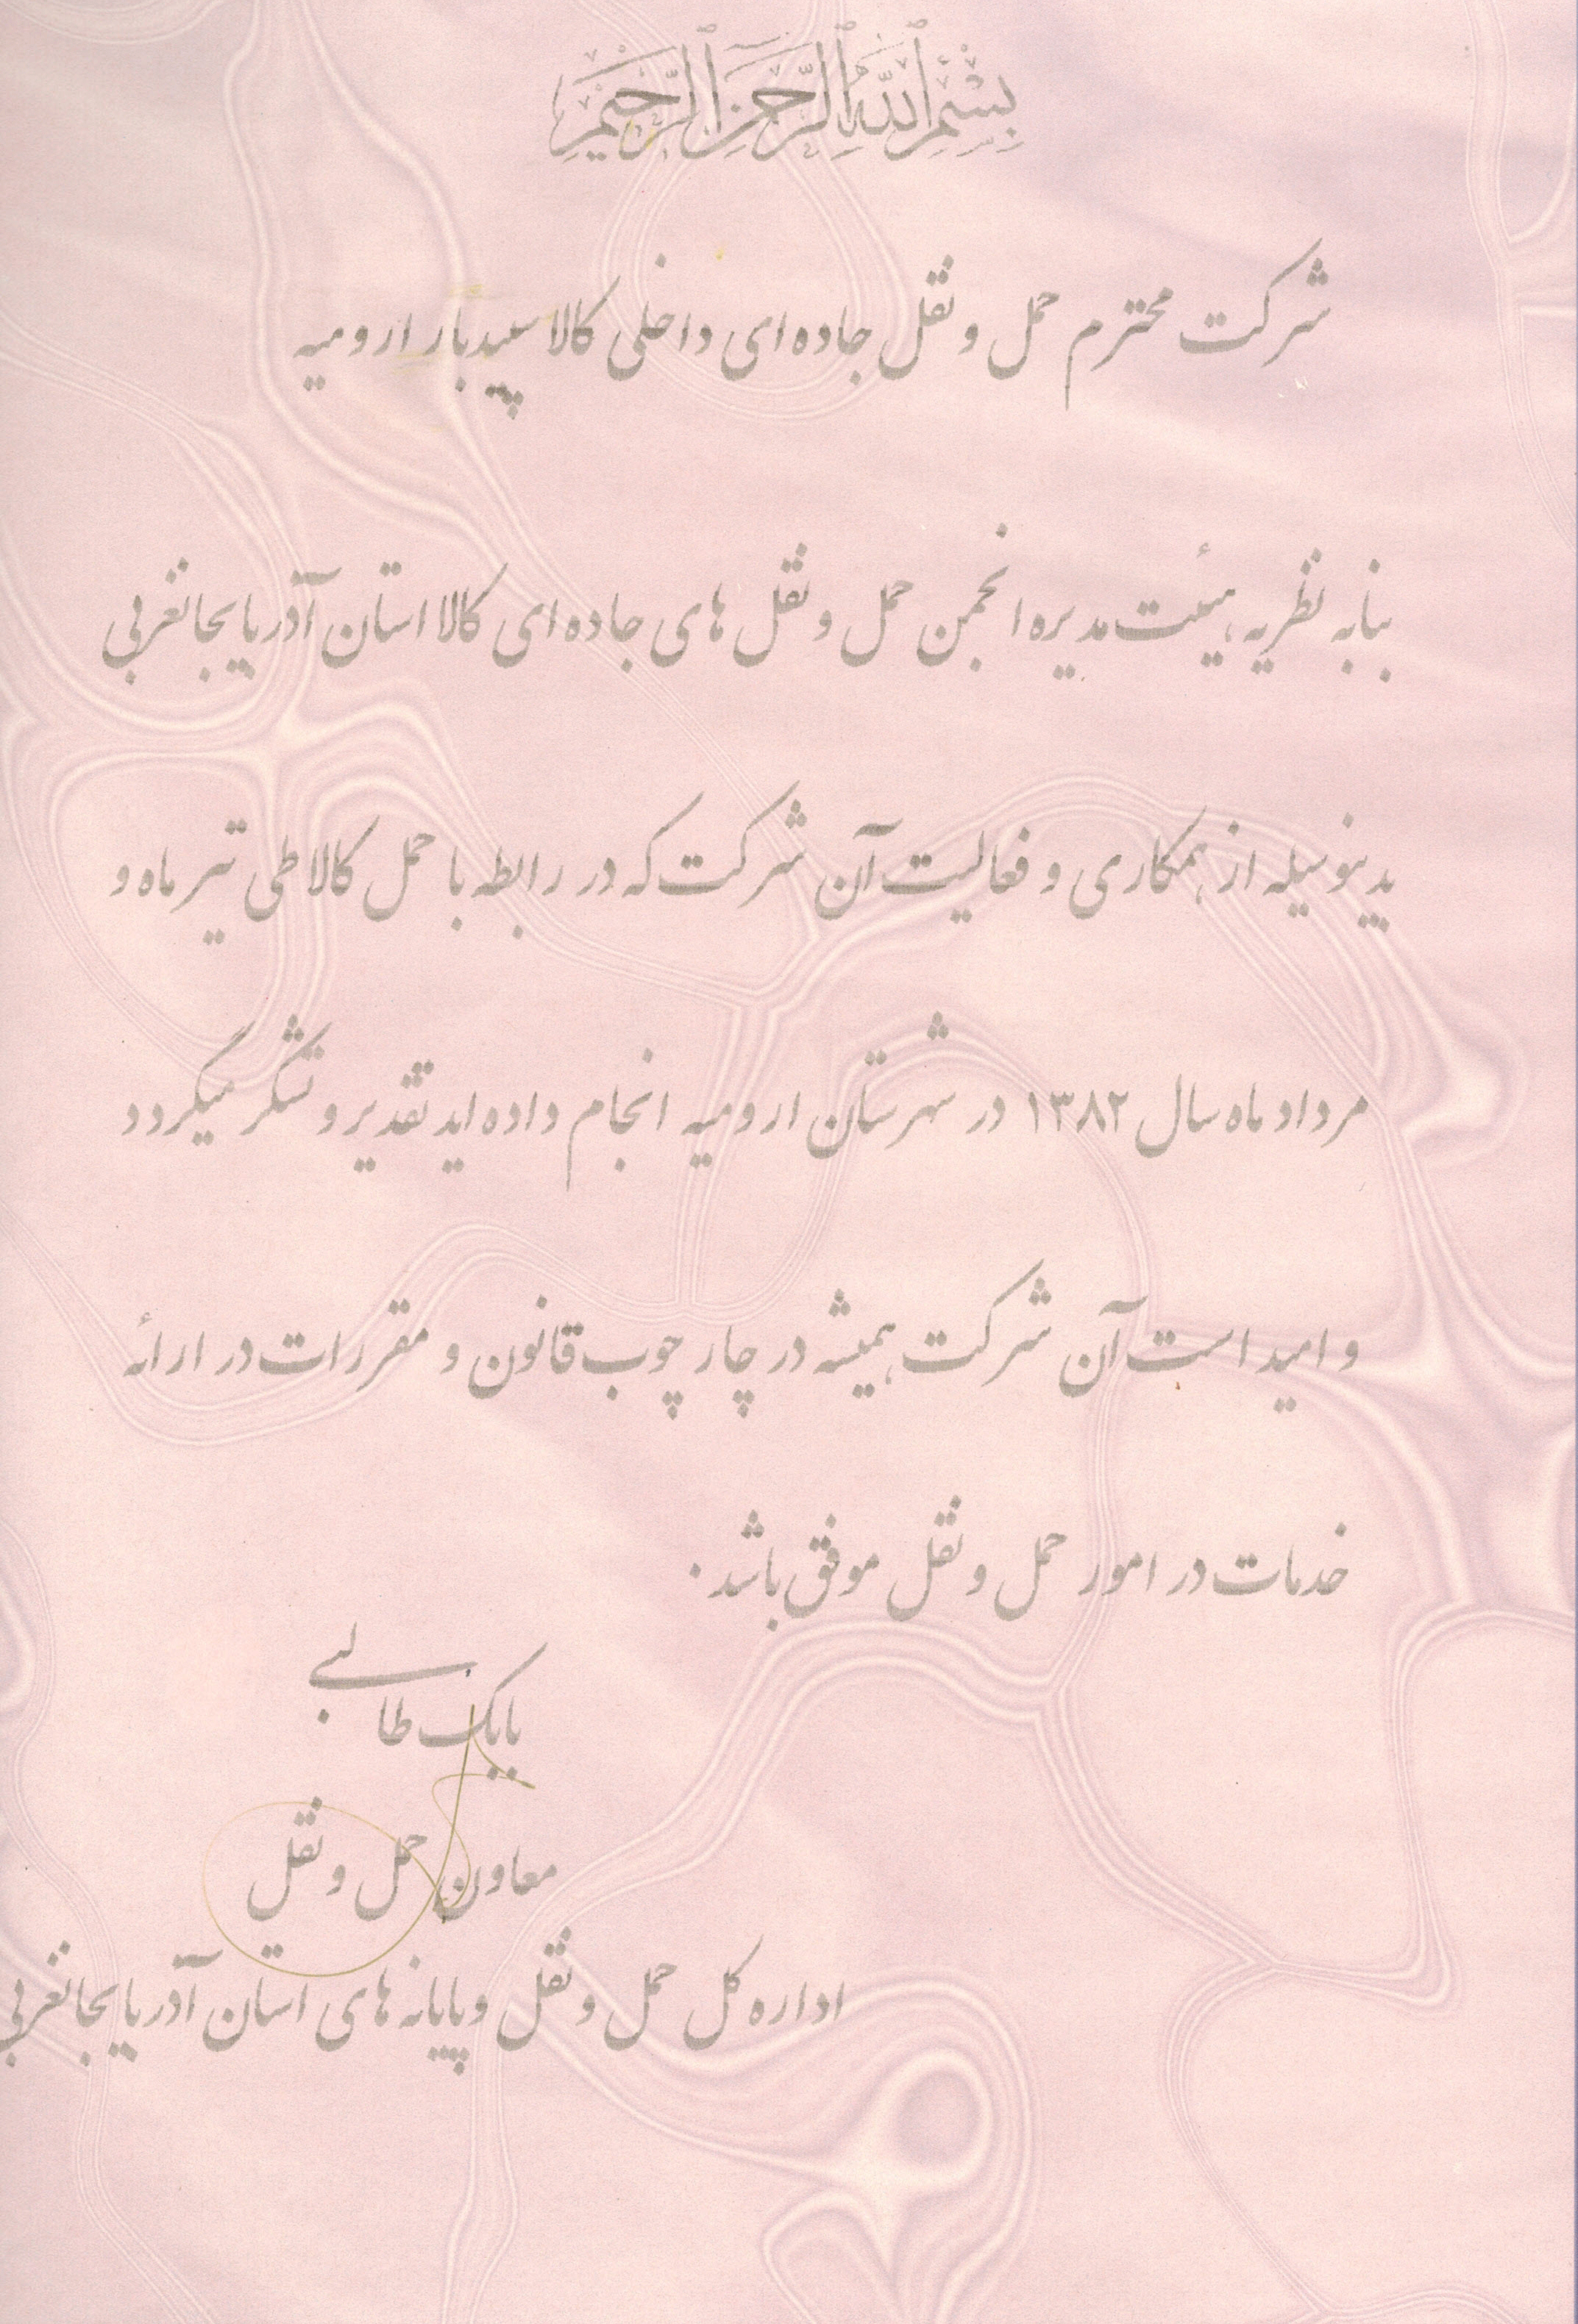 بسم الله الرحمن الرحیم
شرکت محترم حمل و نقل جاده ای داخلی کالا سپیدبار ارومیه
بنابه نظریه هیئت مدیره انجمن حمل و نقل های جاده ای کالا استان آذربایجانغربی
بدینوسیله از همکاری و فعالیت آن شرکت که در رابطه با حمل کالا طی تیر ماه و
مرداد ماه سال ۱۳۸۲ در شهرستان ارومیه انجام داده اید تقدیر و تشکر میگردد
و امید است آن شرکت همیشه در چارچوب قانون و مقررات در ارائه
خدمات در امور حمل و نقل موفق باشد.
بابک طالبی
معاون حمل و نقل
اداره کل حمل و نقل و پایانه های استان آذربایجانغربی